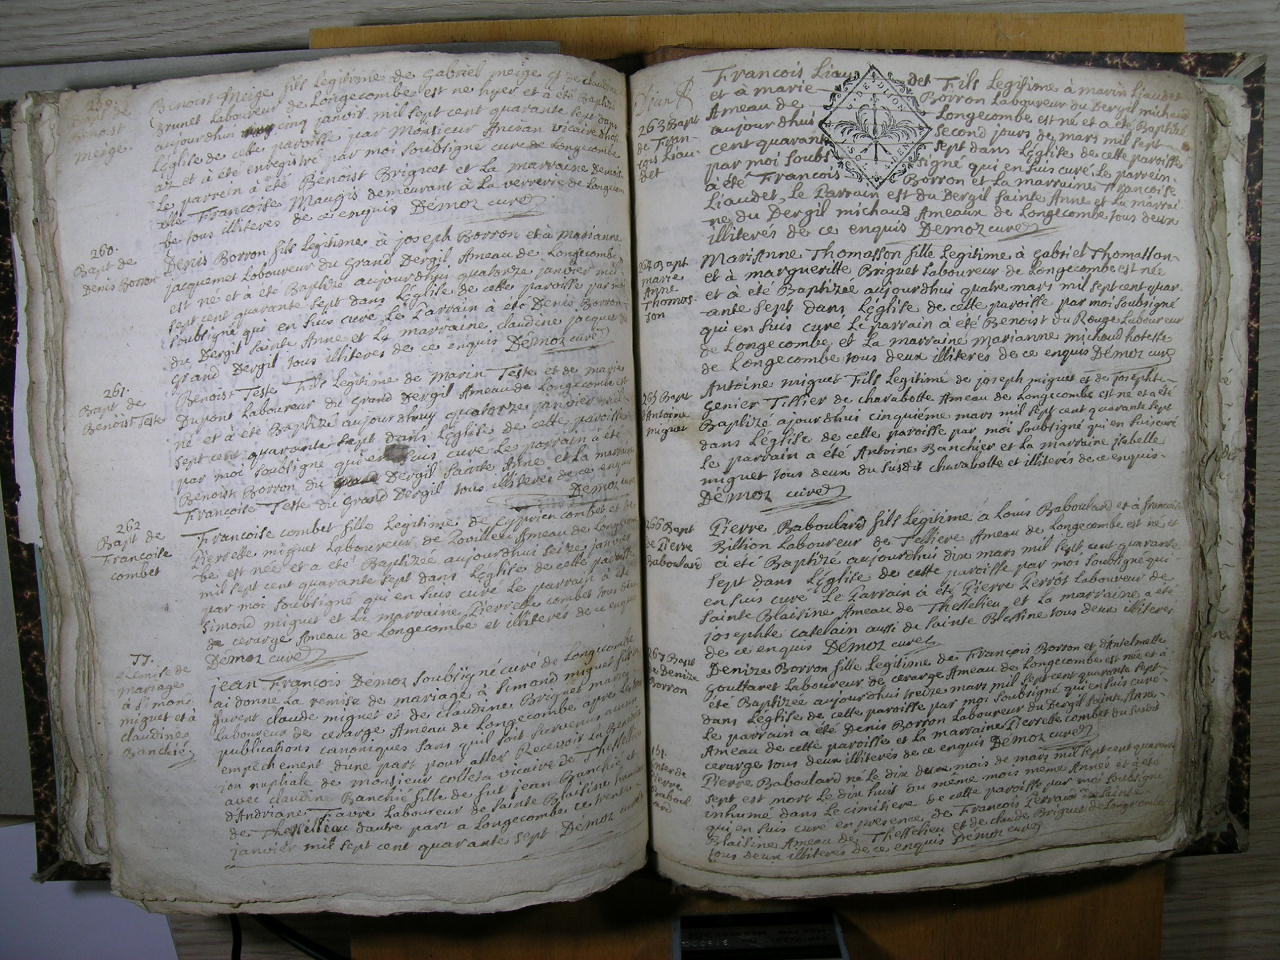 259.
Benoist
Meige.
Benoist Meige fils Legitime de Gabriel meige et de claudine
Brunet Laboureur de Longecombe est né hyer et a été Baptisé
aujourdhuy cinq janvir mil sept cent quarante sept dans
L'église de cette paroisse par Monsieur Ancian vicaire
et a été enregistré par moi soubsigné curé de Longecombe
Le parrein a été Benoist Briguet et La marraine Demois-
elle Francoise Maugis demeurant à La verrerie de Longecom-
be tous illiteres de ce enquis Démoz curé
260.
Bapt de
Denis Borron
Denis Borron fils Legitime à joseph Borron et à marianne
jacquemet Laboureur du Grand Dergil Ameau de Longecombe
est né et a été Baptizé aujourdhuy quatorze janvier mil
sept cent quarante sept dans L'église de cette paroisse par moi
soubsigné qui en suis curé Le Parrain a été Denis Borron
du Dergil Sainte Anne et La marraine, claudine jacquemet
Grand Dergil tous illiteres de ce enquis Démoz curé
261.
Bapt de
Benoist Teste
Benoist Teste Fils Legitime de Marin Teste et de marie
Dupont Laboureur du Grand Dergil Ameau de Longecombe est
né et a été Baptizé aujourdhuy quatorze janvier mil
sept cent quarante sept dans L'église de cette paroisse
par moi soubsigné qui en suis curé Le parrain a été
Benoist Borron du Dergil Sainte Anne et La marraine
Francoise Teste du Grand Dergil tous illiteres de ce enquis
Démoz curé
262
Bapt de
Francoise
combet
Francoise combet fille Legitime de Cyprien combet et de
Pierrette miguet Laboureur de Ameau de Longecom-
be est née et a été Baptizée aujourdhui seize janvier
mil sept cent quarante sept dans L'église de cette paroisse
par moi soubsigné qui en suis curé Le parrain a été
Simond miguet et La marraine Pierrette combet tous deux
de cerarge Ameau de Longecombe et illiteres de ce enquis
Démoz curé
77.
Remise de
mariage
à Simond
miguet et à
claudine
Banchié
jean François Démoz soubsigné curé de Longecombe
ai donné La remise de mariage à Simond miguet fils de
furent claude miguet et de claudine Briguet mariés
Laboureur de cerarge Ameau de Longecombe après les
publications canoniques sans quil soit survenu aucun
empêchement d'une part pour aller Recevoir La Bénédic-
ion nuptiale de Monsieur colleta vicaire de Thessellieu
avec claudine Banchié fille de fut jean Banchié et
d'Andriane Favre Laboureur de Sainte Blaisine
de Thessillieu d'autre part a Longecombe ce
janvier mil sept cent quarante sept Démoz curé
263 Bapt
de Fran-
çois Liau-
det
Francois Liaudet Fils Legitime à marin Liaudet
et à marie Borron Laboureur du Dergil michaud
Ameau de Longecombe est né et a été Baptizé
aujourdhui second jours de mars mil sept
cent quarante sept dans L'église de cette paroisse
par moi soubsigné qui en suis curé Le parrein
a été Francois Borron et La marraine Francoise
Liaudet, Le Parrain est du Dergil Sainte Anne et La marrai-
ne du Dergil michaud Ameaux de Longecombe tous deux
illiteres de ce enquis Démoz curé
264 Bapt
marie
Anne
Thomas-
son
MariAnne Thomasson fille Legitime à Gabriel Thomasson
et à marguerite Briguet Laboureur de Longecombe est née
et a été Baptizée aujourdhui quatre mars mil sept cent quar-
ante sept dans L'église de cette paroisse par moi soubsigné
qui en suis curé Le parrain a été Benoist du Rouge Laboureur
de Longecombe, et La marraine Marianne michaud
de Longecombe tous deux illiteres de ce enquis Démoz curé
265 Bapt
Antoine
miguet
Antoine miguet Fils Legitime de joseph miguet et de josephte
Genier Tillier de charabotte Ameau de Longecombe est né et a été
Baptizé ajourdhui cinquième mars mil sept cent quarante sept
dans L'église de cette paroisse par moi soubsigné qui en suis curé
Le parrain a été Antoine Banchier et La marraine isabelle
miguet tous deux du susdit charabotte et illiteres de ce enquis
Démoz curé
266 Bapt
de Pierre
Baboulard
Pierre Baboulard fils Légitime à Louis Baboulard et à françoise
Billion Laboureur de Tellière Ameau de Longecombe est né et
a été Baptizé aujourdhui dix mars mil sept cent quarante
sept dans L'église de cette paroisse par moi soubsigné qui
en suis curé Le Parrain a été Pierre Perrot Laboureur de
Sainte Blaisine Ameau de Thesselieu, et La marraine a été
josephte catelain aussi de Sainte Blaisine tous deux illiteres
de ce enquis Démoz curé
267 Bapt
de Denize
Borron
Denize Borron fille Legitime de François Borron et d'Antelmette
Gouttaret Laboureur de cerarge Ameau de Longecombe est née et a
été Baptizée aujourdhui treize mars mil sept cent quarante sept
dans L'église de cette paroisse par moi soubsigné qui en suis curé
Le parrain a été Denis Borron Laboureur du Dergil Sainte Anne
Ameau de cette paroisse et La marraine Pierrette combet du susdit
cerarge tous deux illiteres de ce enquis Démoz curé
Pierre Baboulard né Le dix de mois de mars mil sept cent quarante
sept est mort Le dix huit du même mois même Année et a été
inhumé dans Le cimitiere de cette paroisse par moi soubsigné
qui en suis curé en presence de François Perraud de Sainte
Blaisine Ameau de Thesselieu et de claude Briguet de Longecombe
tous deux illiteres de ce enquis Démoz curé